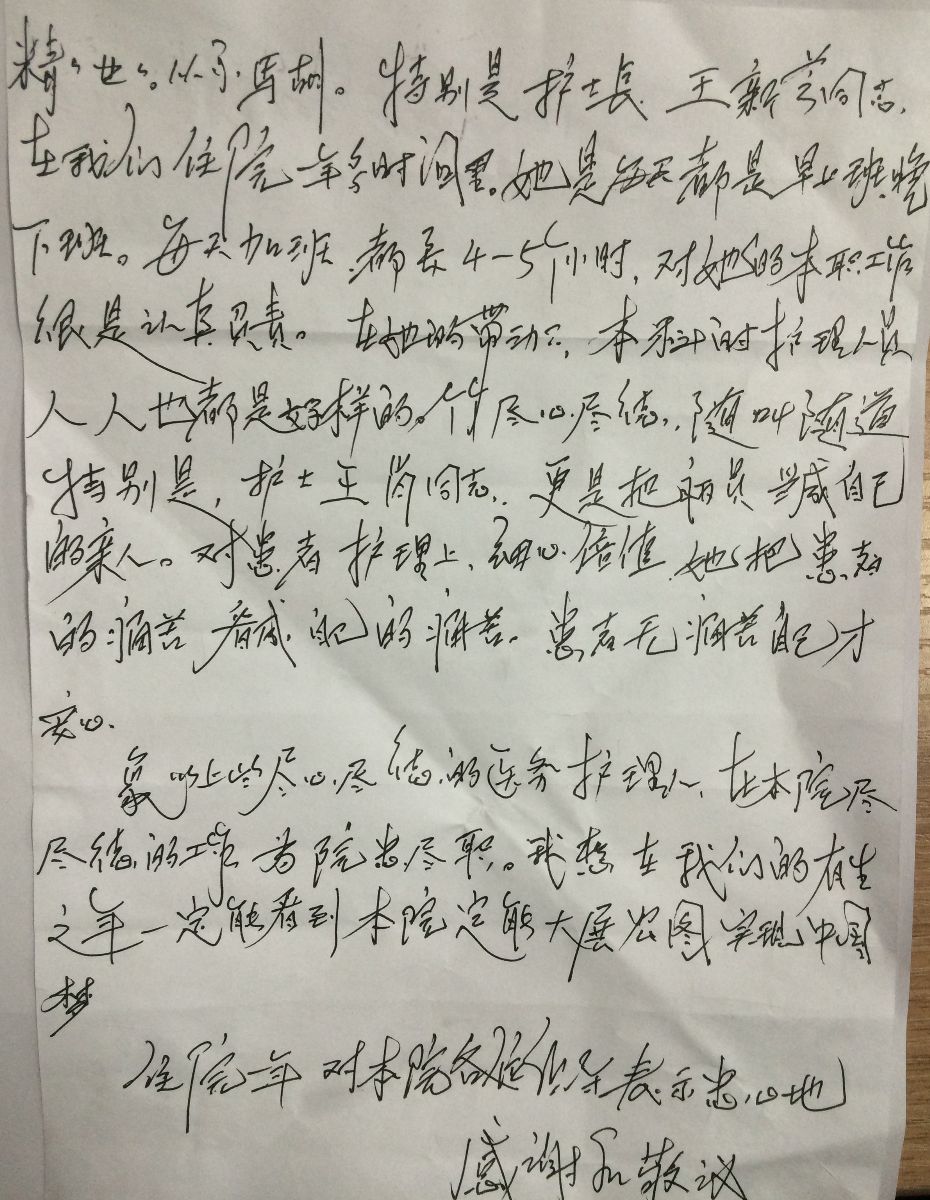 精"也"。从不马胡。特别是护士长 王新芳同志,
在我们住院一年多时间里。她是每天都是早上班晚
下班。每天加班 都长4-5个小时, 对她的本职工作
很是认真负责。 在她的带动下, 本科的护理人员
人人也都是好样的。个个尽心尽德, 随叫随道
特别是, 护士王尚同志, 更是把病员当成自己
的亲人。对患者护理上, 细心倍值 她把患者
的痛苦 看成自己的痛苦。患者无痛苦自己才
安心.
像以上些尽心尽德的医务护理人, 在本院尽
尽德的工作 为院忠尽职。我想在我们的有生
之年一定能看到本院定能大展宏图 实现中国
梦
住院一年 对本院各位表示忠心地
感谢和敬